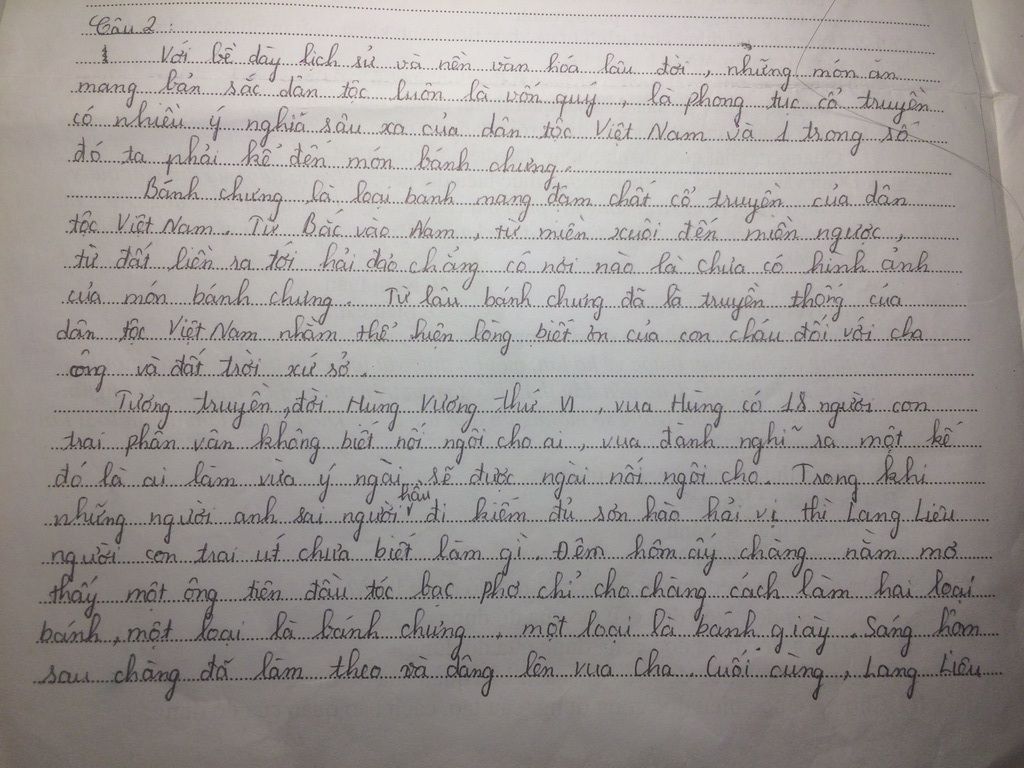 Câu 2 :
1 Với bề dày lịch sử và nền văn hóa lâu đời, những món ăn
mang bản sắc dân tộc luôn là vốn quý, là phong tục cổ truyền
có nhiều ý nghĩa sâu xa của dân tộc Việt Nam và 1 trong số
đó ta phải kể đến món bánh chưng.
Bánh chưng là loại bánh mang đậm chất cổ truyền của dân
tộc Việt Nam. Từ Bắc vào Nam, từ miền xuôi đến miền ngược,
từ đất liền ra tới hải đảo chẳng có nơi nào là chưa có hình ảnh
của món bánh chưng. Từ lâu bánh chưng đã là truyền thống của
dân tộc Việt Nam nhằm thể hiện lòng biết ơn của con cháu đối với cha
ông và đất trời xứ sở.
Tương truyền, đời Hùng Vương thứ VI, vua Hùng có 18 người con
trai phân vân không biết nối ngôi cho ai, vua đành nghĩ ra một kế
đó là ai làm vừa ý ngài sẽ được ngài nối ngôi cho. Trong khi
những người anh sai người hầu đi kiếm đủ sơn hào hải vị thì Lang Liêu
người con trai út chưa biết làm gì. Đêm hôm ấy chàng nằm mơ
thấy một ông tiên đầu tóc bạc phơ chỉ cho chàng cách làm hai loại
bánh, một loại là bánh chưng, một loại là bánh giày. Sáng hôm
sau chàng đã làm theo và dâng lên vua cha. Cuối cùng, Lang Liêu